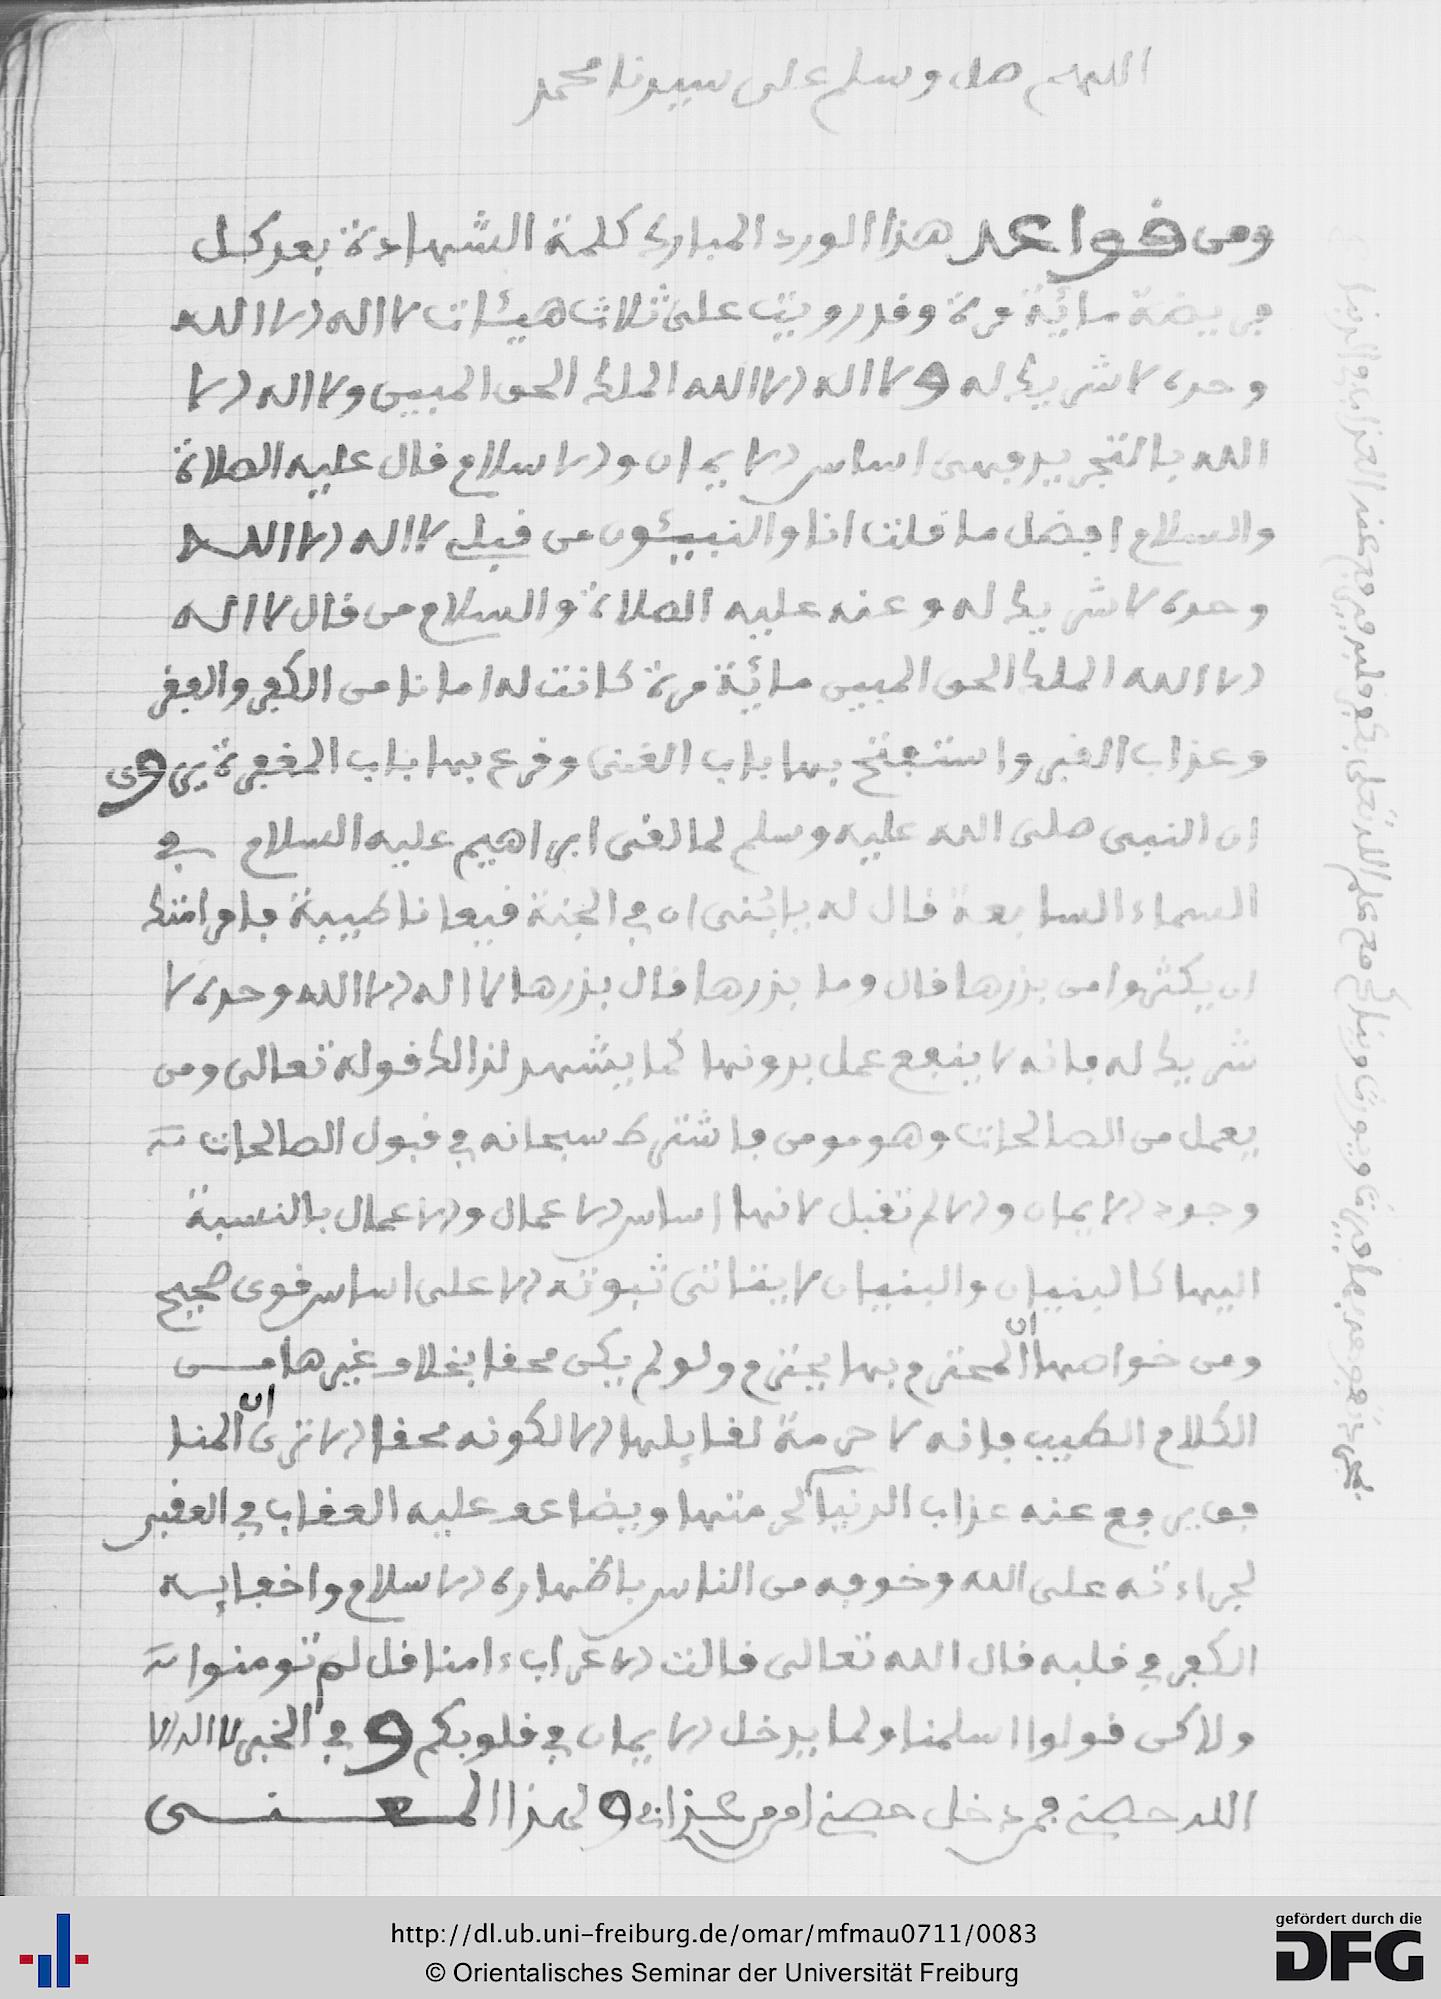 اللهم صل وسلم على سيدنا محمد
ومن قواعد هذا الورد المبارك كلمة الشهادة بعد كل
فريضة مائة مرة وقد رويت على ثلاث هيئات لا اله الا الله
وحده لا شريك له و لا اله الا الله الملك الحق المبين ولا اله الا
الله بالتجريد فهى اساس الايمان والاسلام قال عليه الصلاة
والسلام افضل ما قلت انا والنبيئون من قبلى لا اله الا الله
وحده لا شريك له وعنه عليه الصلاة والسلام من قال لا اله
الا الله الملك الحق المبين مائة مرة كانت له امانا من الكفر والفقر
وعذاب القبر واستفتح بها باب الغنى وقرع بها باب المغفرة
ان النبى صلى الله عليه وسلم لما لقى ابراهيم عليه السلام في
السماء السابعة قال له يابنى ان في الجنة قيعانا طيبة فامر امتك
ان يكثروا من بذرها قال وما بذرها قال بذرها لا اله الا الله وحده لا
شريك له فانه لا ينفع عمل بدونها كما يشهد لذالك قوله تعالى ومن
يعمل من الصالحات وهو مومن فاشترط سبحانه في قبول الصالحات
وجود الايمان والا لم تقبل لانها اساس الاعمال والاعمال بالنسبة
اليها كالبنيان والبنيان لا يتاتى ثبوته الا على اساس قوى صحيح
ومن خواصها ان المحترم بها يحترم ولو لم يكن محقا بخلاف غيرها من
الكلام الطيب فانه لا حرمة لقايلها الا لكونه محقا الا ترى ان المنا
فق يرفع عنه عذاب الدنيا لحرمتها ويضاعف عليه العقاب في العقبى
لجراءته على الله وخوفه من الناس باظهاره الاسلام واخفايه
الكفر في قلبه قال الله تعالى قالت الاعراب ءامنا قل لم تومنوا
ولاكن قولوا اسلمنا ولما يدخل الايمان في قلوبكم و في الخبر لا اله الا
الله حصنى فمن دخل حصنى امن من عذابى و لهذا المعنى